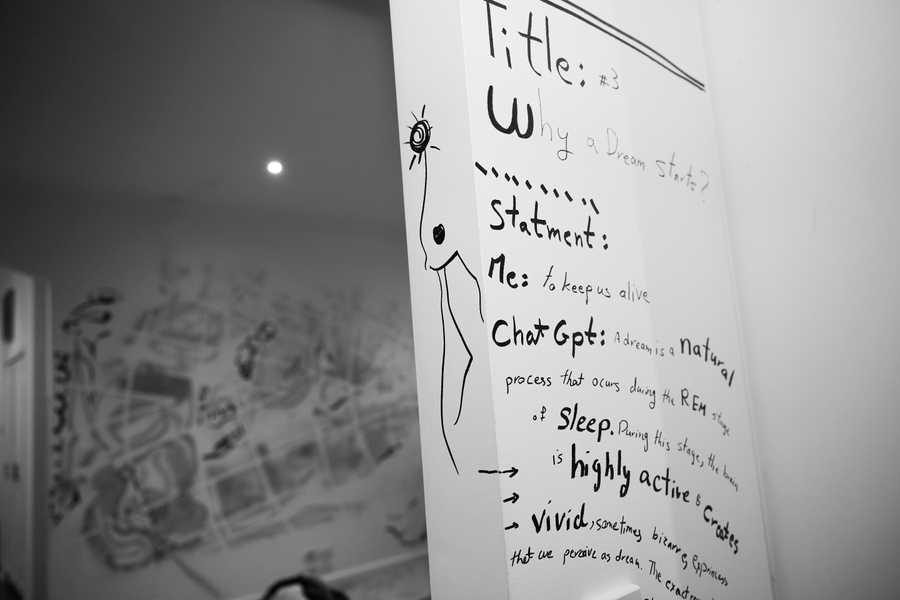 Title: #3
Why a Dream starts?
Statment:
Me: to keep us alive
Chat Gpt: A dream is a natural
process that ocurs during the REM stage
of sleep. During this stage, the brain
is highly active & Creates
vivid, sometimes bizarre
that we perceive as dream. The exact